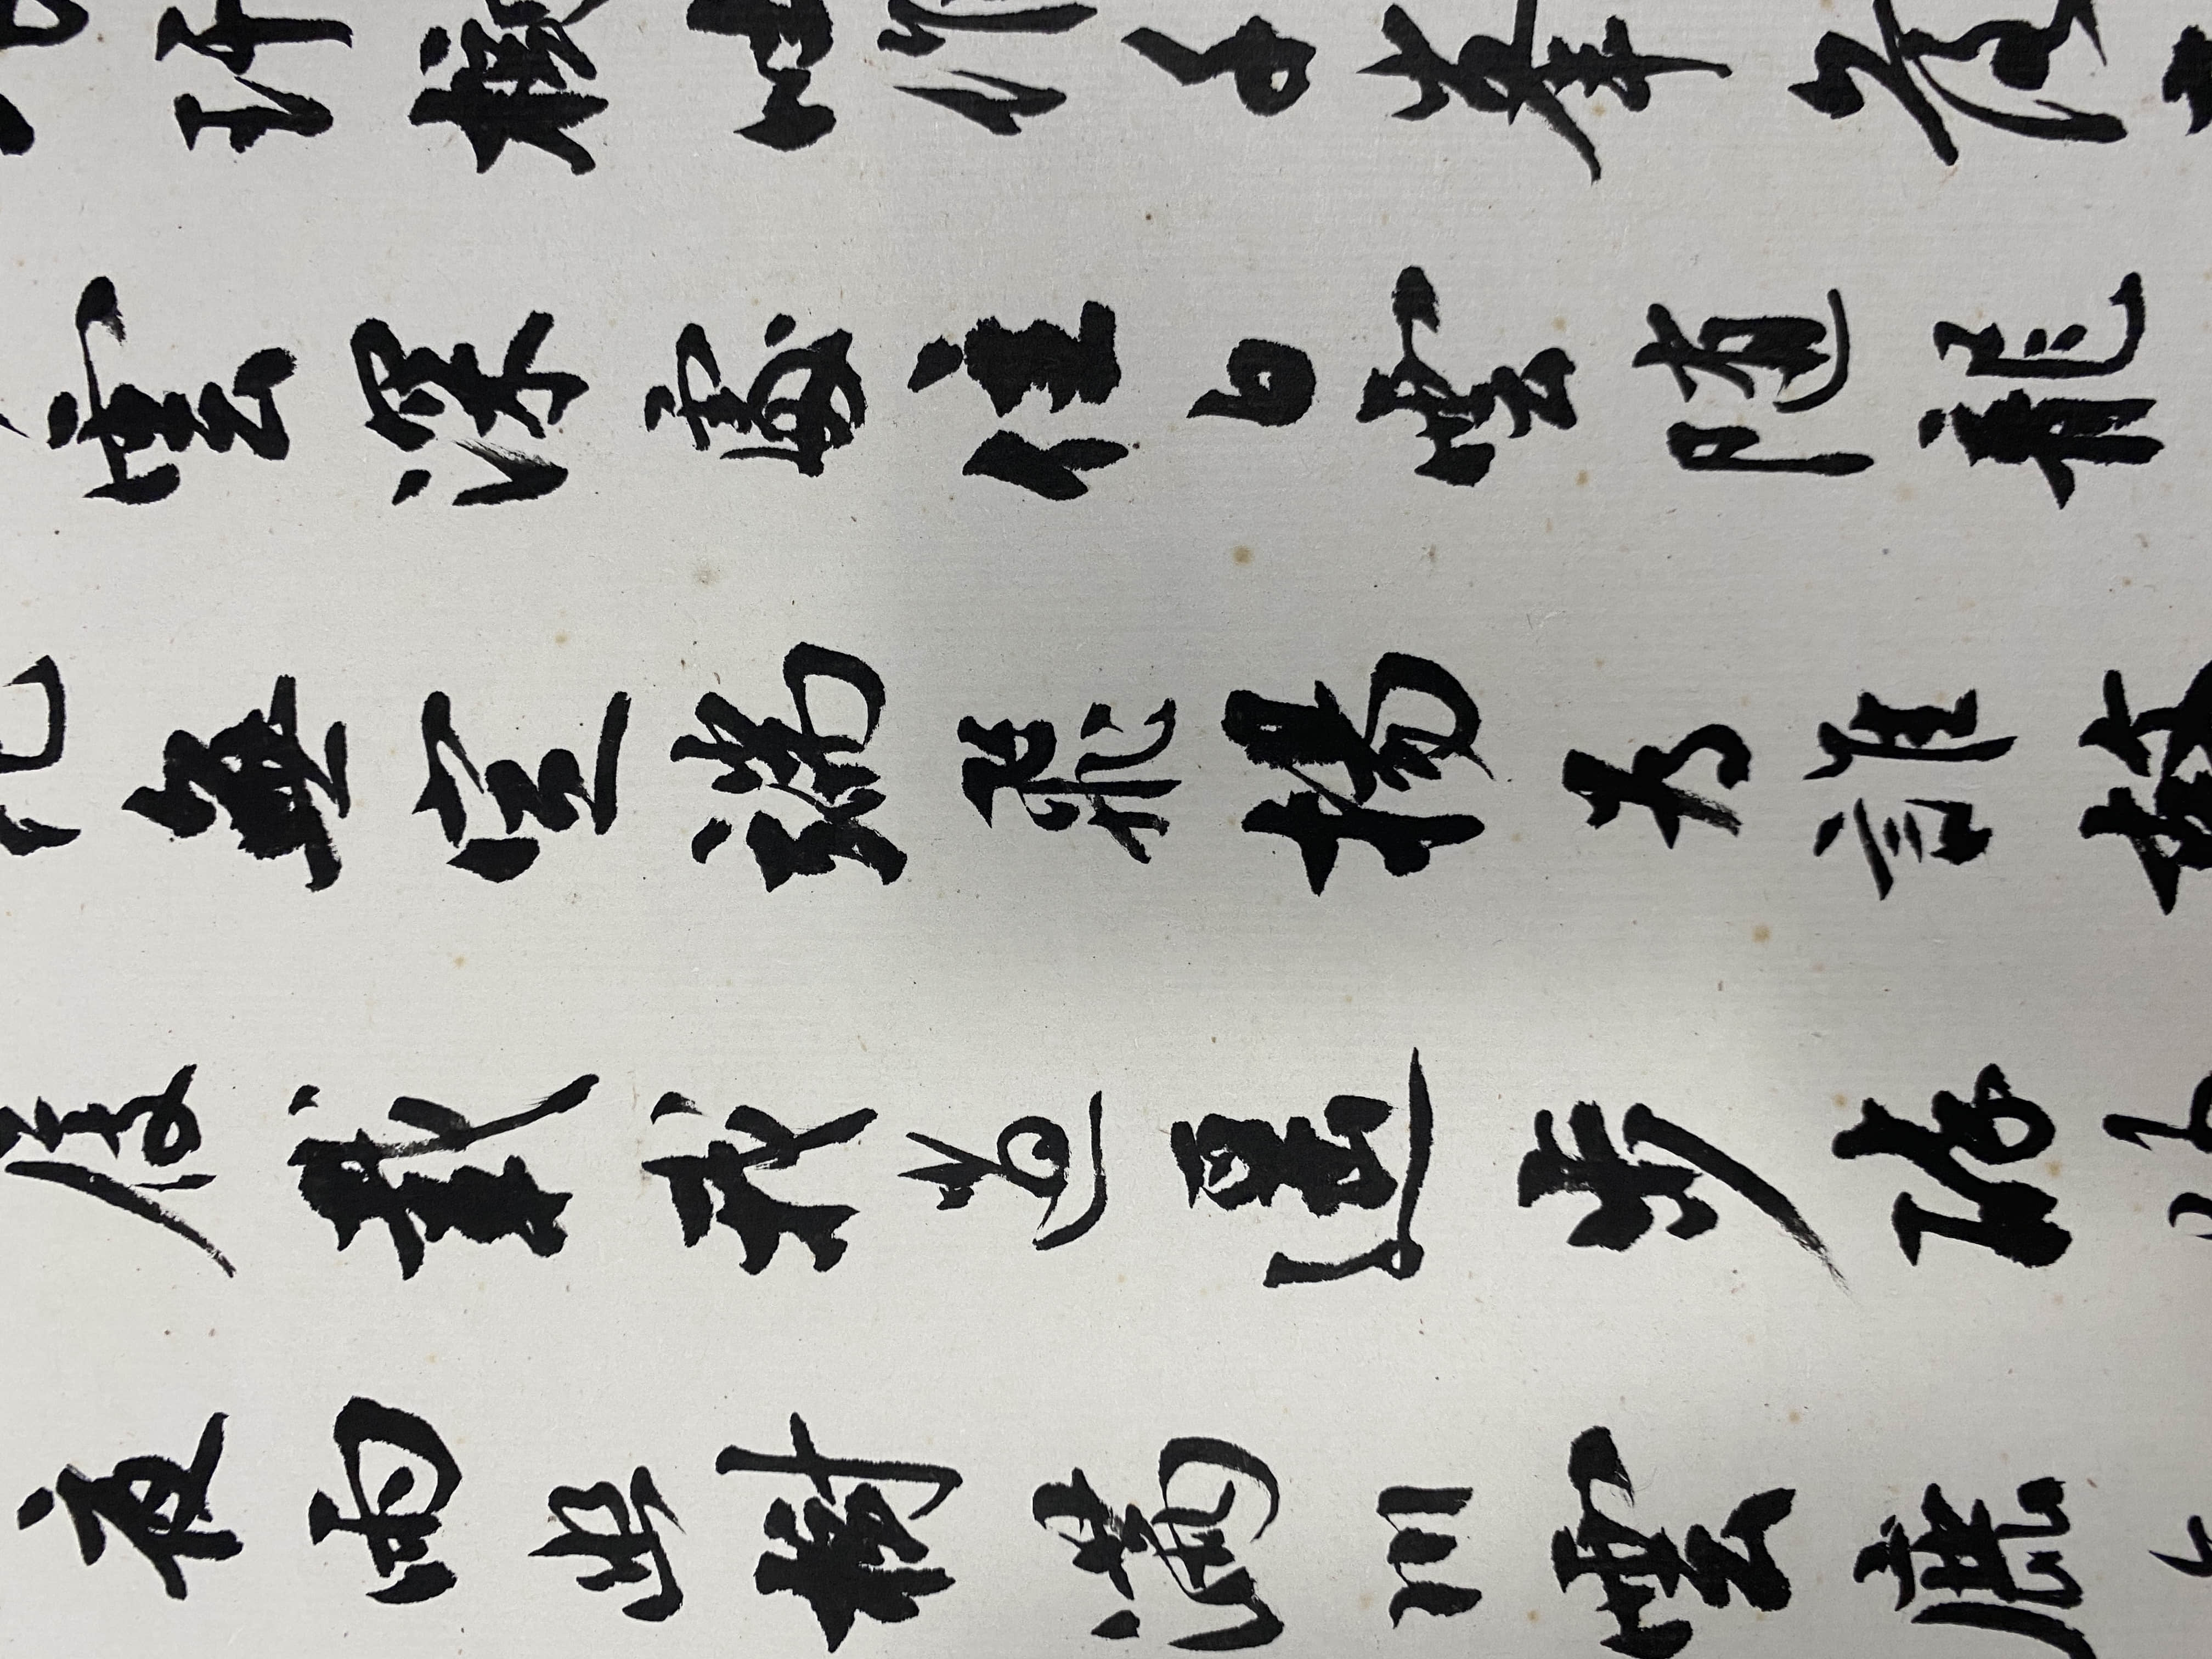 玕樹吐作千峯
雲深處住白雲随龍
無定端飛揚為誰
載我逍遥步
夜雨幽樹滿川雲鹿